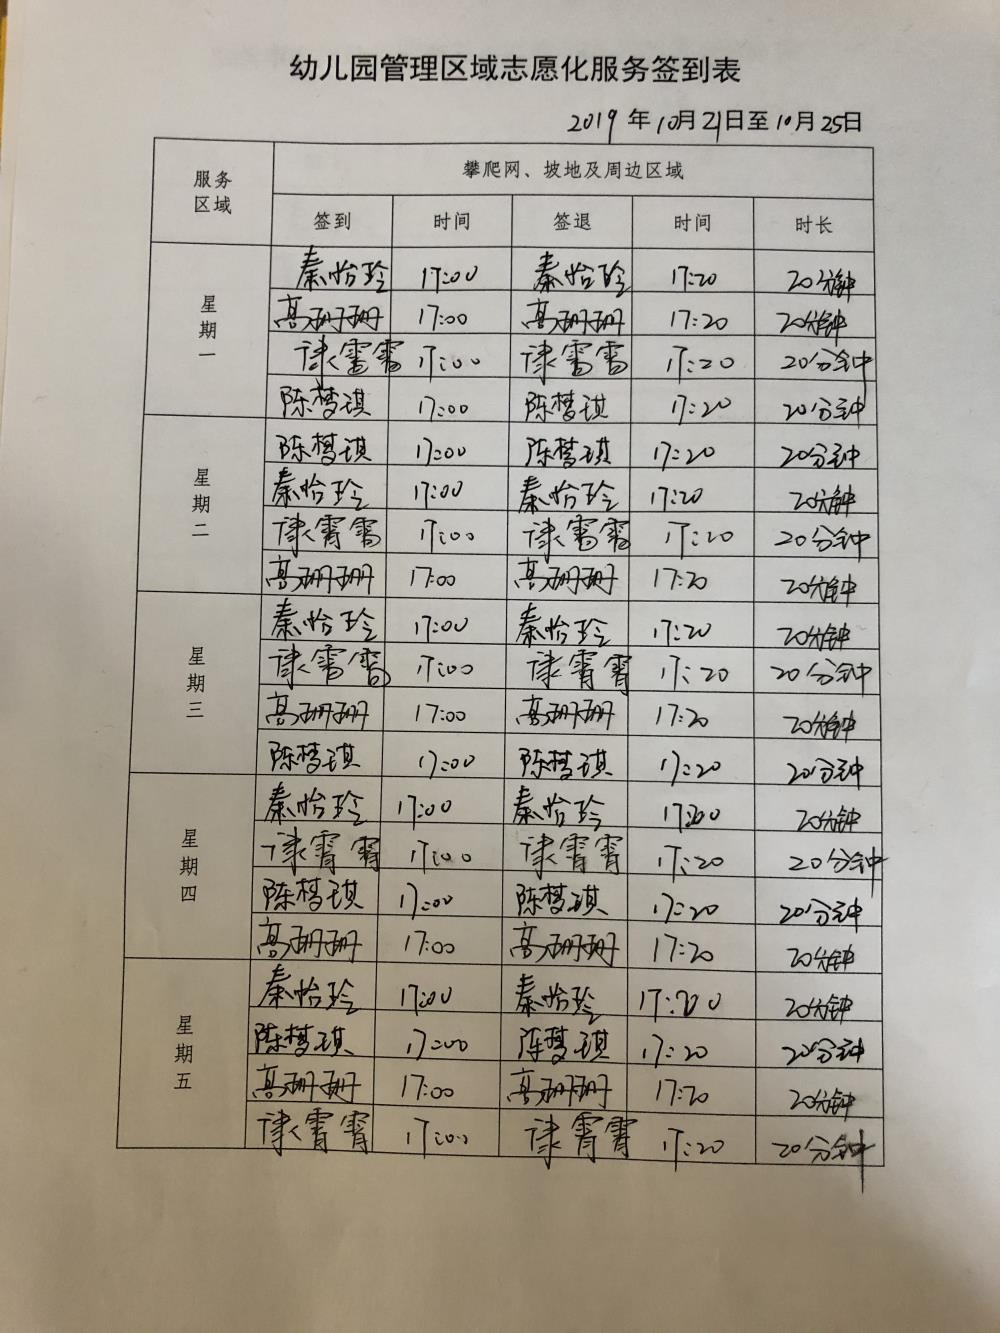 幼儿园管理区域志愿化服务签到表
2019 年 10月 21日至 10月 25日
服务区域 攀爬网、坡地及周边区域
签到 时间 签退 时间 时长
星期一
秦怡玲 17:00 秦怡玲 17:20 20分钟
高珊珊 17:00 高珊珊 17:20 20分钟
谏霄霄 17:00 谏霄霄 17:20 20分钟
陈梦琪 17:00 陈梦琪 17:20 20分钟
星期二
陈梦琪 17:00 陈梦琪 17:20 20分钟
秦怡玲 17:00 秦怡玲 17:20 20分钟
谏霄霄 17:00 谏霄霄 17:20 20分钟
高珊珊 17:00 高珊珊 17:20 20分钟
星期三
秦怡玲 17:00 秦怡玲 17:20 20分钟
谏霄霄 17:00 谏霄霄 17:20 20分钟
高珊珊 17:00 高珊珊 17:20 20分钟
陈梦琪 17:00 陈梦琪 17:20 20分钟
星期四
秦怡玲 17:00 秦怡玲 20分钟
谏霄霄 17:00 谏霄霄 17:20 20分钟
陈梦琪 17:00 陈梦琪 17:20 20分钟
高珊珊 17:00 高珊珊 17:20 20分钟
星期五
秦怡玲 17:00 秦怡玲 17:20 20分钟
陈梦琪 17:00 陈梦琪 17:20 20分钟
高珊珊 17:00 高珊珊 17:20 20分钟
谏霄霄 17:00 谏霄霄 17:20 20分钟